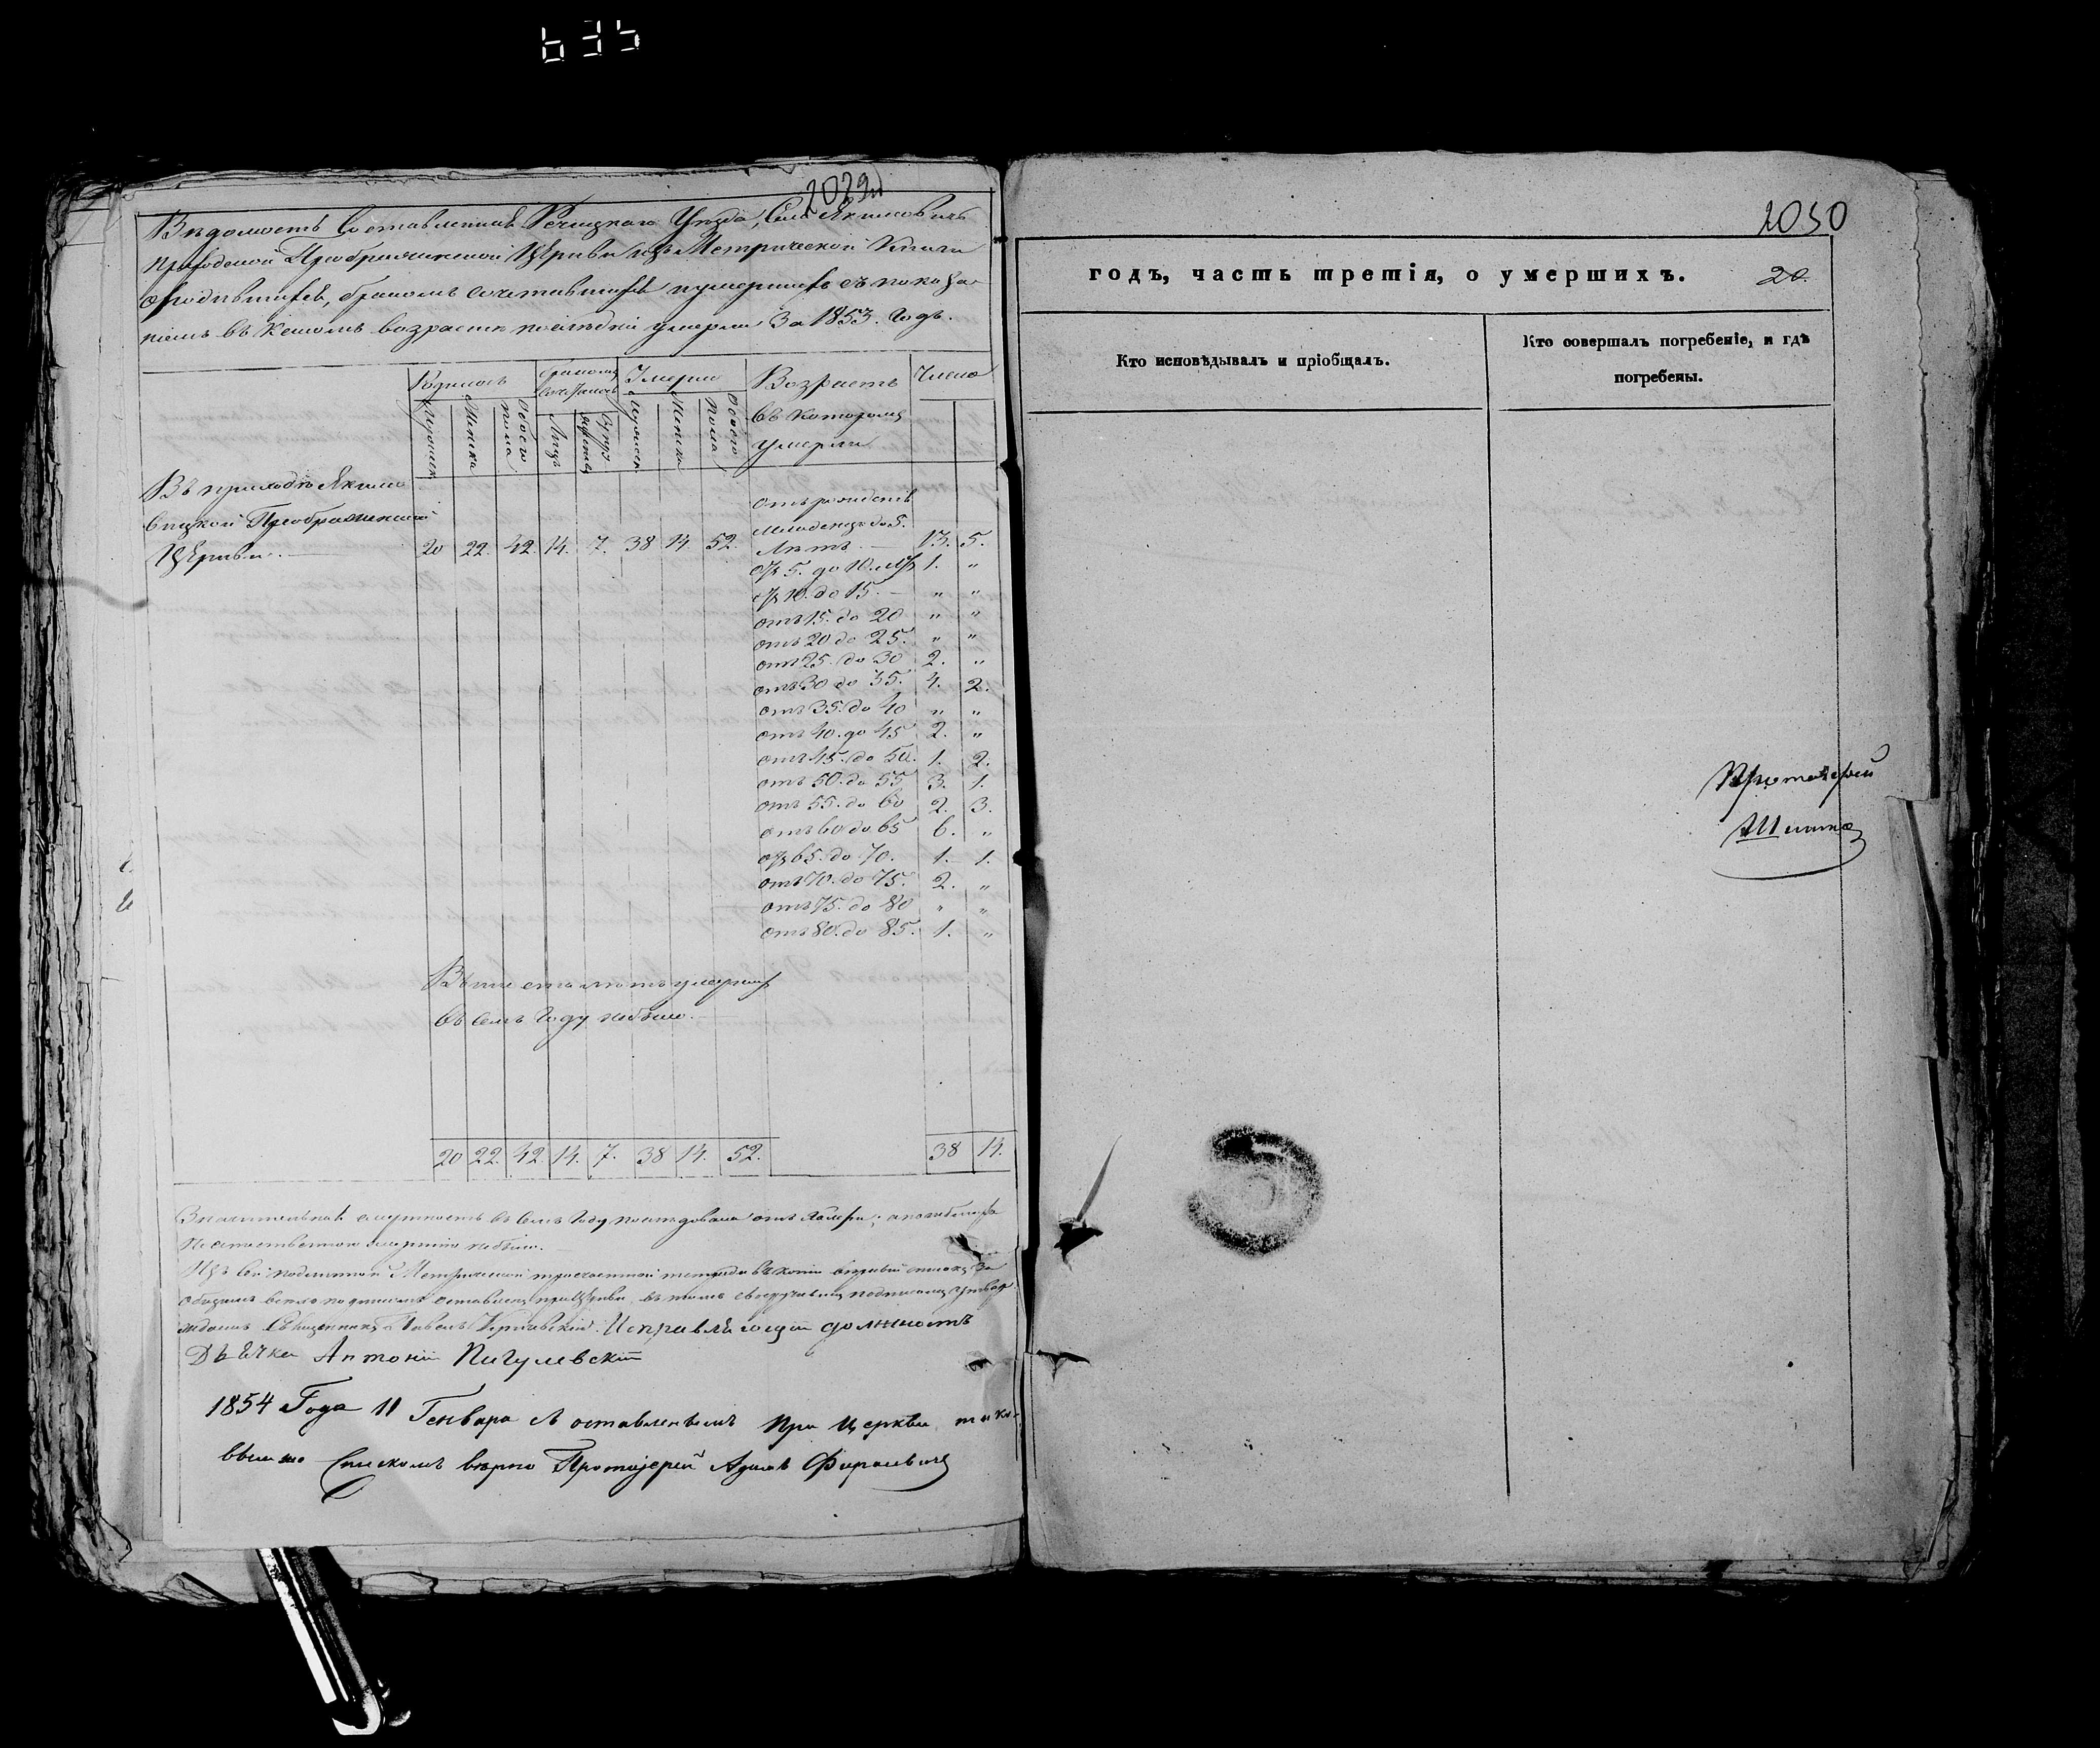 635
2029
Вѣдомость Составленная Речицкаго Уѣзда, Села Якимовичъ
приходской Преображенской Церкви изъ Метрической Книги
о родившихся, бракомъ сочетавшихся и умершихъ съ показа-
ніемъ въ коемъ возрастѣ послѣдніи умерли За 1853. Годъ.
Родилось
Умерло
Возрастъ
Число
Мужеска
Женска
Обоего пола
Лицъ
Мужеска
Женска
Обоего пола
въ которомъ
умерли
Въ приходѣ Якимо
вицкой Преображенской
Церкви. 20 22. 42. 14. 7. 38 14. 52.
отъ рожденія
младенцевъ до 5.
Лѣтъ. 13. 5.
отъ 5. до 10. лѣтъ 1. „
отъ 10. до 15. „ „
отъ 15. до 20 „ „
отъ 20 до 25. „ „
отъ 25. до 30 2. „
отъ 30 до 35. 4. 2.
отъ 35. до 40 „ „
отъ 40. до 45 2. „
отъ 45. до 50. 1. 2.
отъ 50. до 55 3. 1.
отъ 55. до 60 2. 3.
отъ 60 до 65 6. „
отъ 65. до 70. 1. 1.
отъ 70. до 75. 2. „
отъ 75. до 80 „ „
отъ 80. до 85. 1. „
Выше ста лѣтъ умершихъ
въ семъ Году небыло.
20 22. 42. 14. 7. 38 14. 52. 38 14.
Значительная смертность въ семъ Году последовала отъ Холеры; а погибшихъ
неестественною смертію небыло.
Священникъ Павелъ Исправляющій должность
Дьячка Антоній Пигулевскій
1854 Года 11 Генваря Съ оставленнымъ при Церкви тако-
вымже Спискомъ вѣрно Протоіерей Адамъ Фирсевичъ
2030
годъ, часть третія, о умершихъ. 20.
Кто исповѣдывалъ и пріобщалъ.
Кто совершалъ погребеніе, и гдѣ
погребены.
Протоіерей